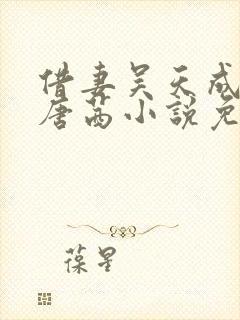 借妻吴天成
唐茜小说免
葆星